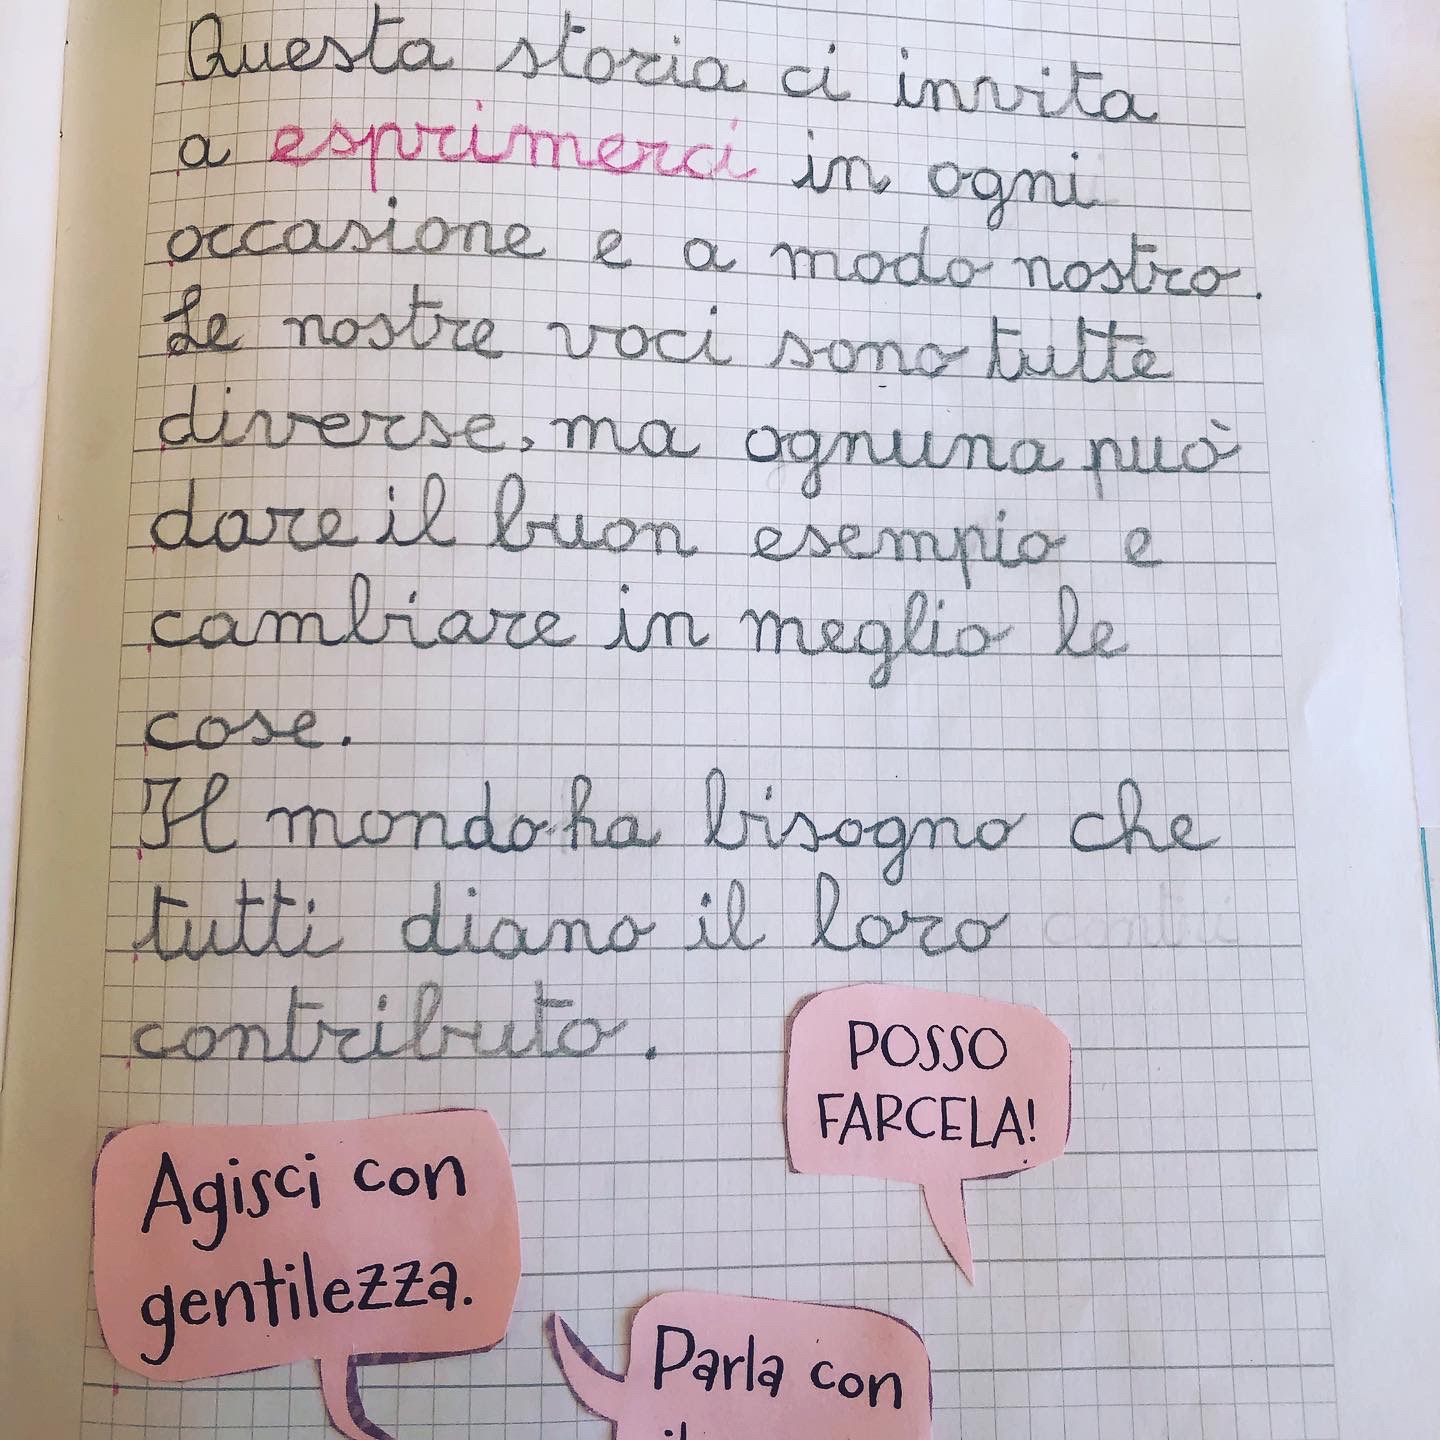 Questa storia ci invita
a esprimerci in ogni
occasione e a modo nostro.
Le nostre voci sono tutte
diverse, ma ognuna può
dare il buon esempio e
cambiare in meglio le
cose.
Il mondo ha bisogno che
tutti diano il loro contri
contributo.
POSSO
FARCELA!
Agisci con
gentilezza.
Parla con